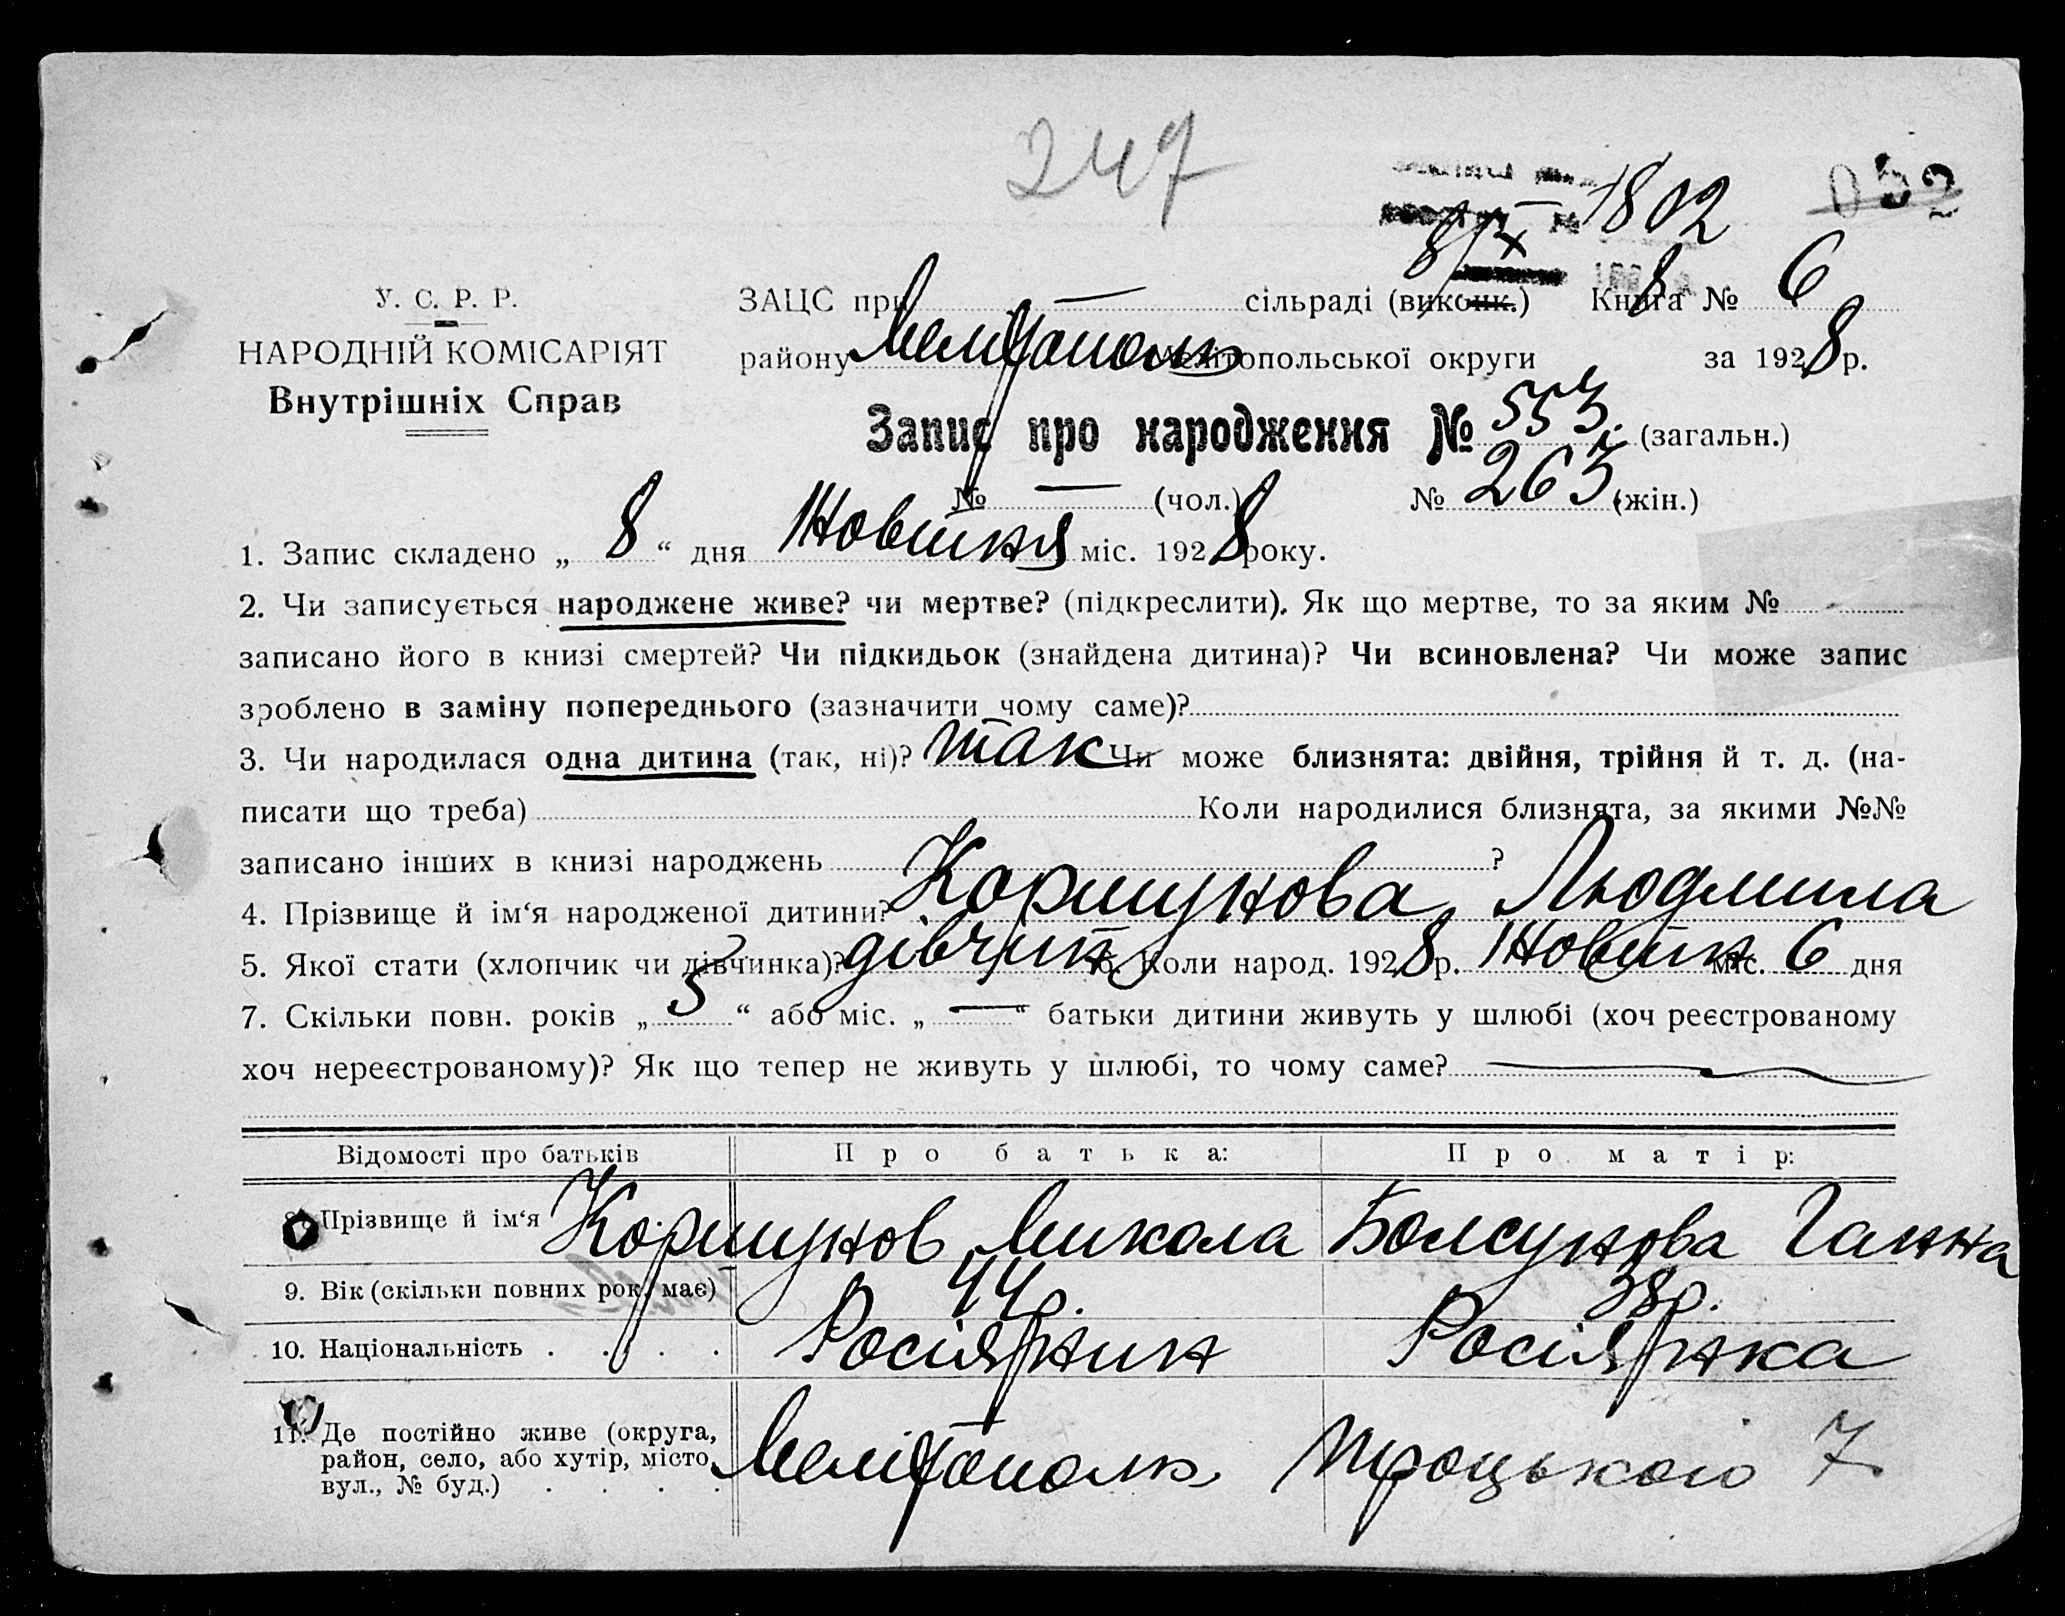 247
1802
052
8/X
8
У. С. Р. Р.
НАРОДНІЙ КОМІСАРІЯТ
Внутрішніх Справ
ЗАЦС при — сільраді (виконк.) Книга № 6
району Мелітополь Мелітопольської округи за 1928 р.
Запис про народження № 553. (загальн.)
№ — (чол.) № 263 (жін.)
1. Запис складено „ 8 “ дня Жовтня міс. 1928 року.
2. Чи записується народжене живе? чи мертве? (підкреслити). Як що мертве, то за яким №
записано його в книзі смертей? Чи підкидьок (знайдена дитина)? Чи всиновлена? Чи може запис
зроблено в заміну попереднього (зазначити чому саме)?
3. Чи народилася одна дитина (так, ні)? так Чи може близнята: двійня, трійня й т. д. (на-
писати що треба) Коли народилися близнята, за якими №№
записано інших в книзі народжень ?
4. Прізвище й ім‘я народженої дитини? Коршунова Людмила
5. Якої стати (хлопчик чи дівчинка)? дівчинк 6. Коли народ. 1928 р. Жовтня міс. 6 дня
7. Скільки повн. років „ 5 “ або міс. „ — “ батьки дитини живуть у шлюбі (хоч реєстрованому
хоч нереєстрованому)? Як що тепер не живуть у шлюбі, то чому саме? —
Відомості про батьків Про батька: Про матір:
8. Прізвище й ім‘я Коршунов Микола Болсунова Ганна
9. Вік (скільки повних рок. має) 44 р. 38 р.
10. Національність . . . . Росіянин Росіянка
11. Де постійно живе (округа,
район, село, або хутір, місто,
вул., № буд.) . . . . Мелітополь Троцького 7